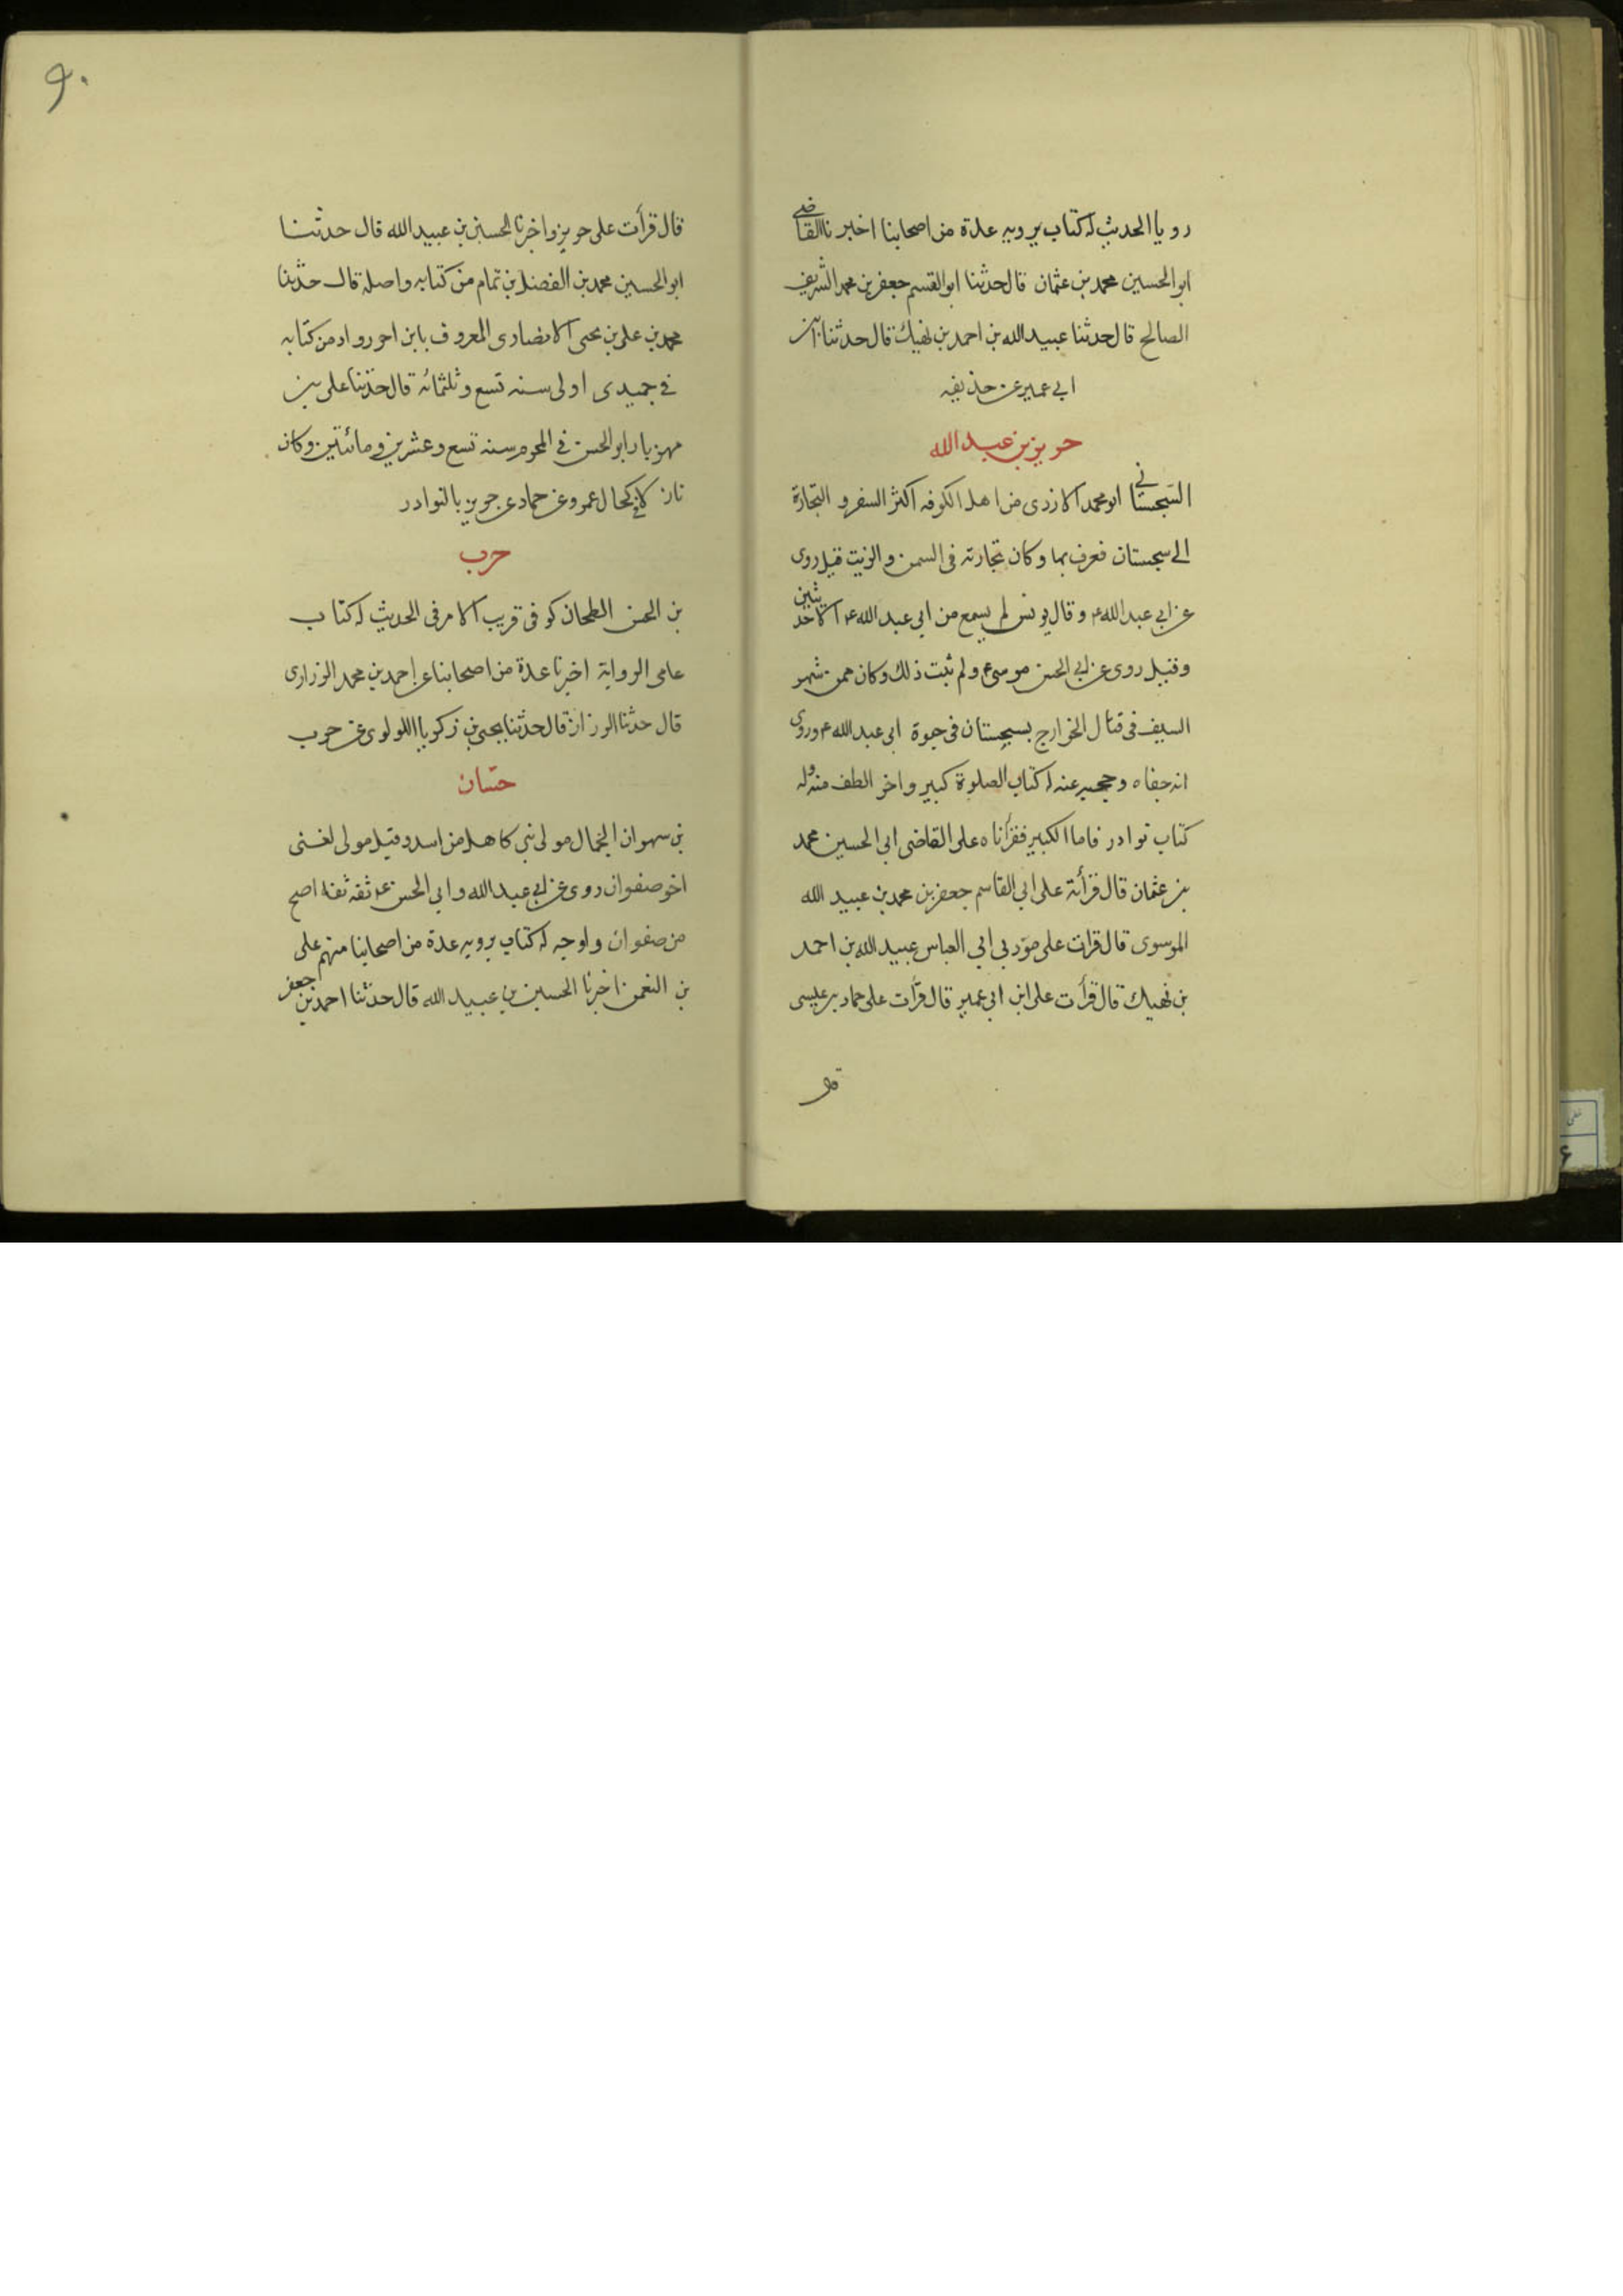 رويا الحديث له كتاب يرويه عدة من اصحابنا اخبرنا القاضي
ابو الحسين محمد بن عثمان قال حدثنا ابو القسم جعفر بن محمد الشريف
الصالح قال حدثنا عبيد الله بن احمد بن نهيك قال حدثنا ابن
ابي عمير عن حذيفه
حريز بن عبد الله
السجستاني ابو محمد الازدى من اهل الكوفه اكثر السفر و التجارة
الى سجستان فعرف بها وكان تجارته فى السمن و الزيت قيل روى
عن ابي عبد الله ع و قال يونس لم يسمع من ابى عبد الله ع الا حديثين
وقيل روى عن ابي الحسن موسى ع ولم ثبت ذلك وكان ممن شهر
السيف فى قتال الخوارج بسجستان فى حيوة ابى عبد الله ع وروى
انه جفاه و حجبه عنه له كتاب الصلوة كبير و اخر الطف منه وله
كتاب نوادر فاما الكبير فقرأناه على القاضى ابى الحسين محمد
بن عثمان قال قرأته على ابي القاسم جعفر بن محمد بن عبيد الله
الموسوى قال قرات على مؤدبي ابي العباس عبيد الله بن احمد
بن نهيك قال قرأت على ابن ابى عمير قال قرأت على حماد بن عيسى
قال
٩٠
قال قرأت على حريز واخبرنا الحسين بن عبيد الله قال حدثنا
ابو الحسين محمد بن الفضل بن تمام من كتابه واصله قال حدثنا
محمد بن على بن يحيى الانصارى المعروف بابن اخى رواد من كتابه
فى جميدى اولى سنه تسع و ثلثمائه قال حدثنا على بن
مهزيار ابو الحسن فى المحرم سنه تسع وعشرين ومائتين وكان
نازلا فى عمرو عن حماد عن حريز بالنوادر
حرب
بن الحسن الطحان كوفى قريب الامر فى الحديث له كتاب
عامى الرواية اخبرنا عدة من اصحابنا عن احمد بن محمد الزرارى
قال حدثنا الرزاز قال حدثنا يحيى بن زكريا اللولوى عن حرب
حسان
بن مهران الجمال مولى بنى كاهل من اسد وقيل مولى لغنى
اخو صفوان روى عن ابي عبد الله و ابي الحسن ع ثقه ثقه اصح
من صفوان و اوجه له كتاب يرويه عدة من اصحابنا منهم على
بن النعمن اخبرنا الحسين بن عبيد الله قال حدثنا احمد بن جعفر